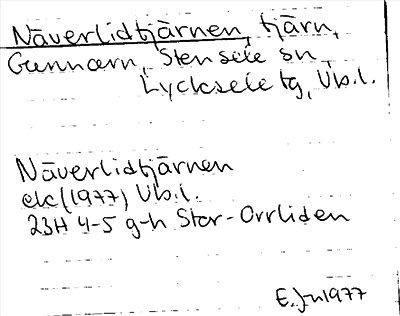 Näverlidtjärnen, tjärn,
Gunnarn, Stensele sn,
Lycksele tg, Vb.l.
Näverlidtjärnen
ek (1977) Vb.l.
23H 4-5 g-h Stor-Orrliden
E. Jn 1977